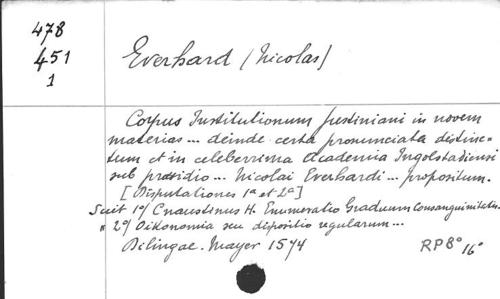 478
451
1
Everhard (Nicolas)
Corpus Institutionum Justiniani in novem
materias ... deinde certa pronunciata distinc=
tum et in celeberrima Academia Ingolstadiensi
sub præsidio ... Nicolai Everhardi ... propositum.
[Disputationes 1a et 2a]
Suit 1°/ Cnaustinus H. Enumeratio Graduum Consanguinitatis.
" 2°/ Oikonomia seu dispositio regularum ...
Dilingae. Mayer 1574
RP 8° 16°